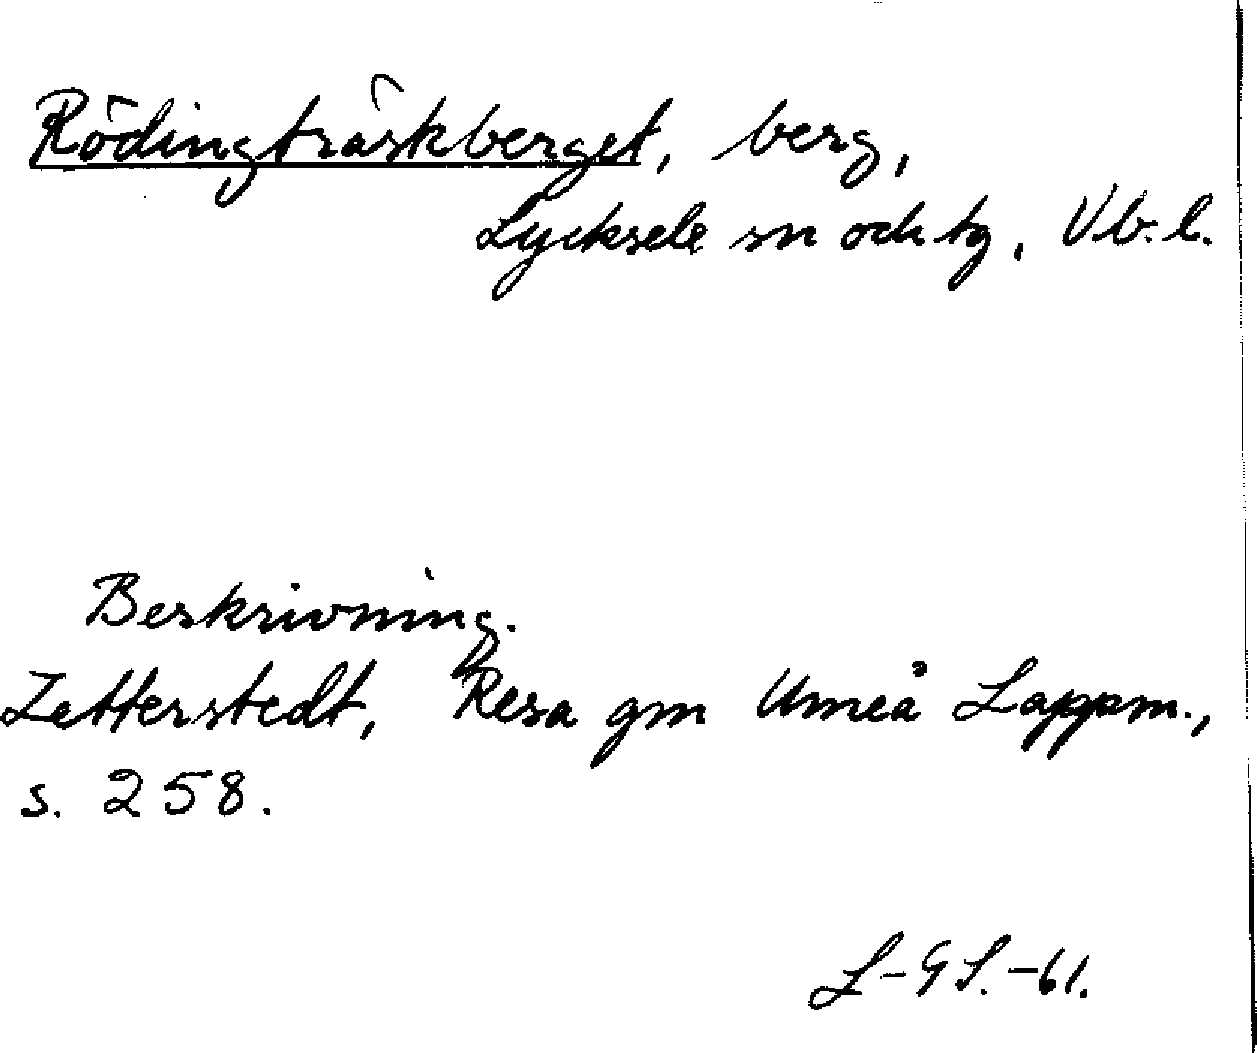 Rödingträskberget, berg,
Lycksele sn och tg, Vb. l.
Beskrivning.
Zetterstedt, Resa gm Umeå Lappm.,
s. 258.
L-GS.-61.